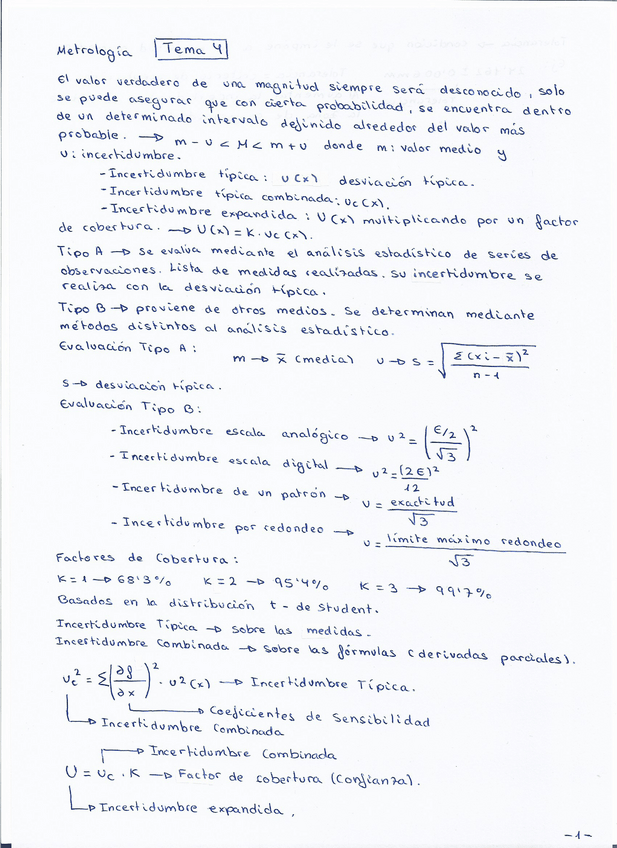 Metrología Tema 4
El valor verdadero de una magnitud siempre será desconocido, solo
se puede asegurar que con cierta probabilidad, se encuentra dentro
de un determinado intervalo definido alrededor del valor más
probable. → m - U < M < m + U donde m: valor medio y
U: incertidumbre.
- Incertidumbre típica: U(x) desviación típica.
- Incertidumbre típica combinada: Uc(x).
- Incertidumbre expandida: U(x) multiplicando por un factor
de cobertura. → U(x) = K · Uc(x).
Tipo A → Se evalua mediante el análisis estadístico de series de
observaciones. Lista de medidas realizadas. Su incertidumbre se
realiza con la desviación típica.
Tipo B → proviene de otros medios. Se determinan mediante
métodos distintos al análisis estadístico.
Evaluación Tipo A: m → x̄ (media) U → S = √(Σ(xi - x̄)² / n-1)
S → desviación típica.
Evaluación Tipo B:
- Incertidumbre escala analógico → U² = ((ϵ/2)/√3)²
- Incertidumbre escala digital → U² = (2ϵ)²/12
- Incertidumbre de un patrón → U = exactitud/√3
- Incertidumbre por redondeo → U = límite máximo redondeo/√3
Factores de Cobertura:
K = 1 → 68'3% K = 2 → 95'4% K = 3 → 99'7%
Basados en la distribución t - de Student.
Incertidumbre Típica → sobre las medidas.
Incertidumbre Combinada → sobre las fórmulas (derivadas parciales).
Uc² = Σ(∂f/∂x)² · U²(x) → Incertidumbre Típica.
→ Coeficientes de Sensibilidad
→ Incertidumbre Combinada
→ Incertidumbre Combinada
U = Uc · K → Factor de cobertura (Confianza).
→ Incertidumbre expandida.
-1-